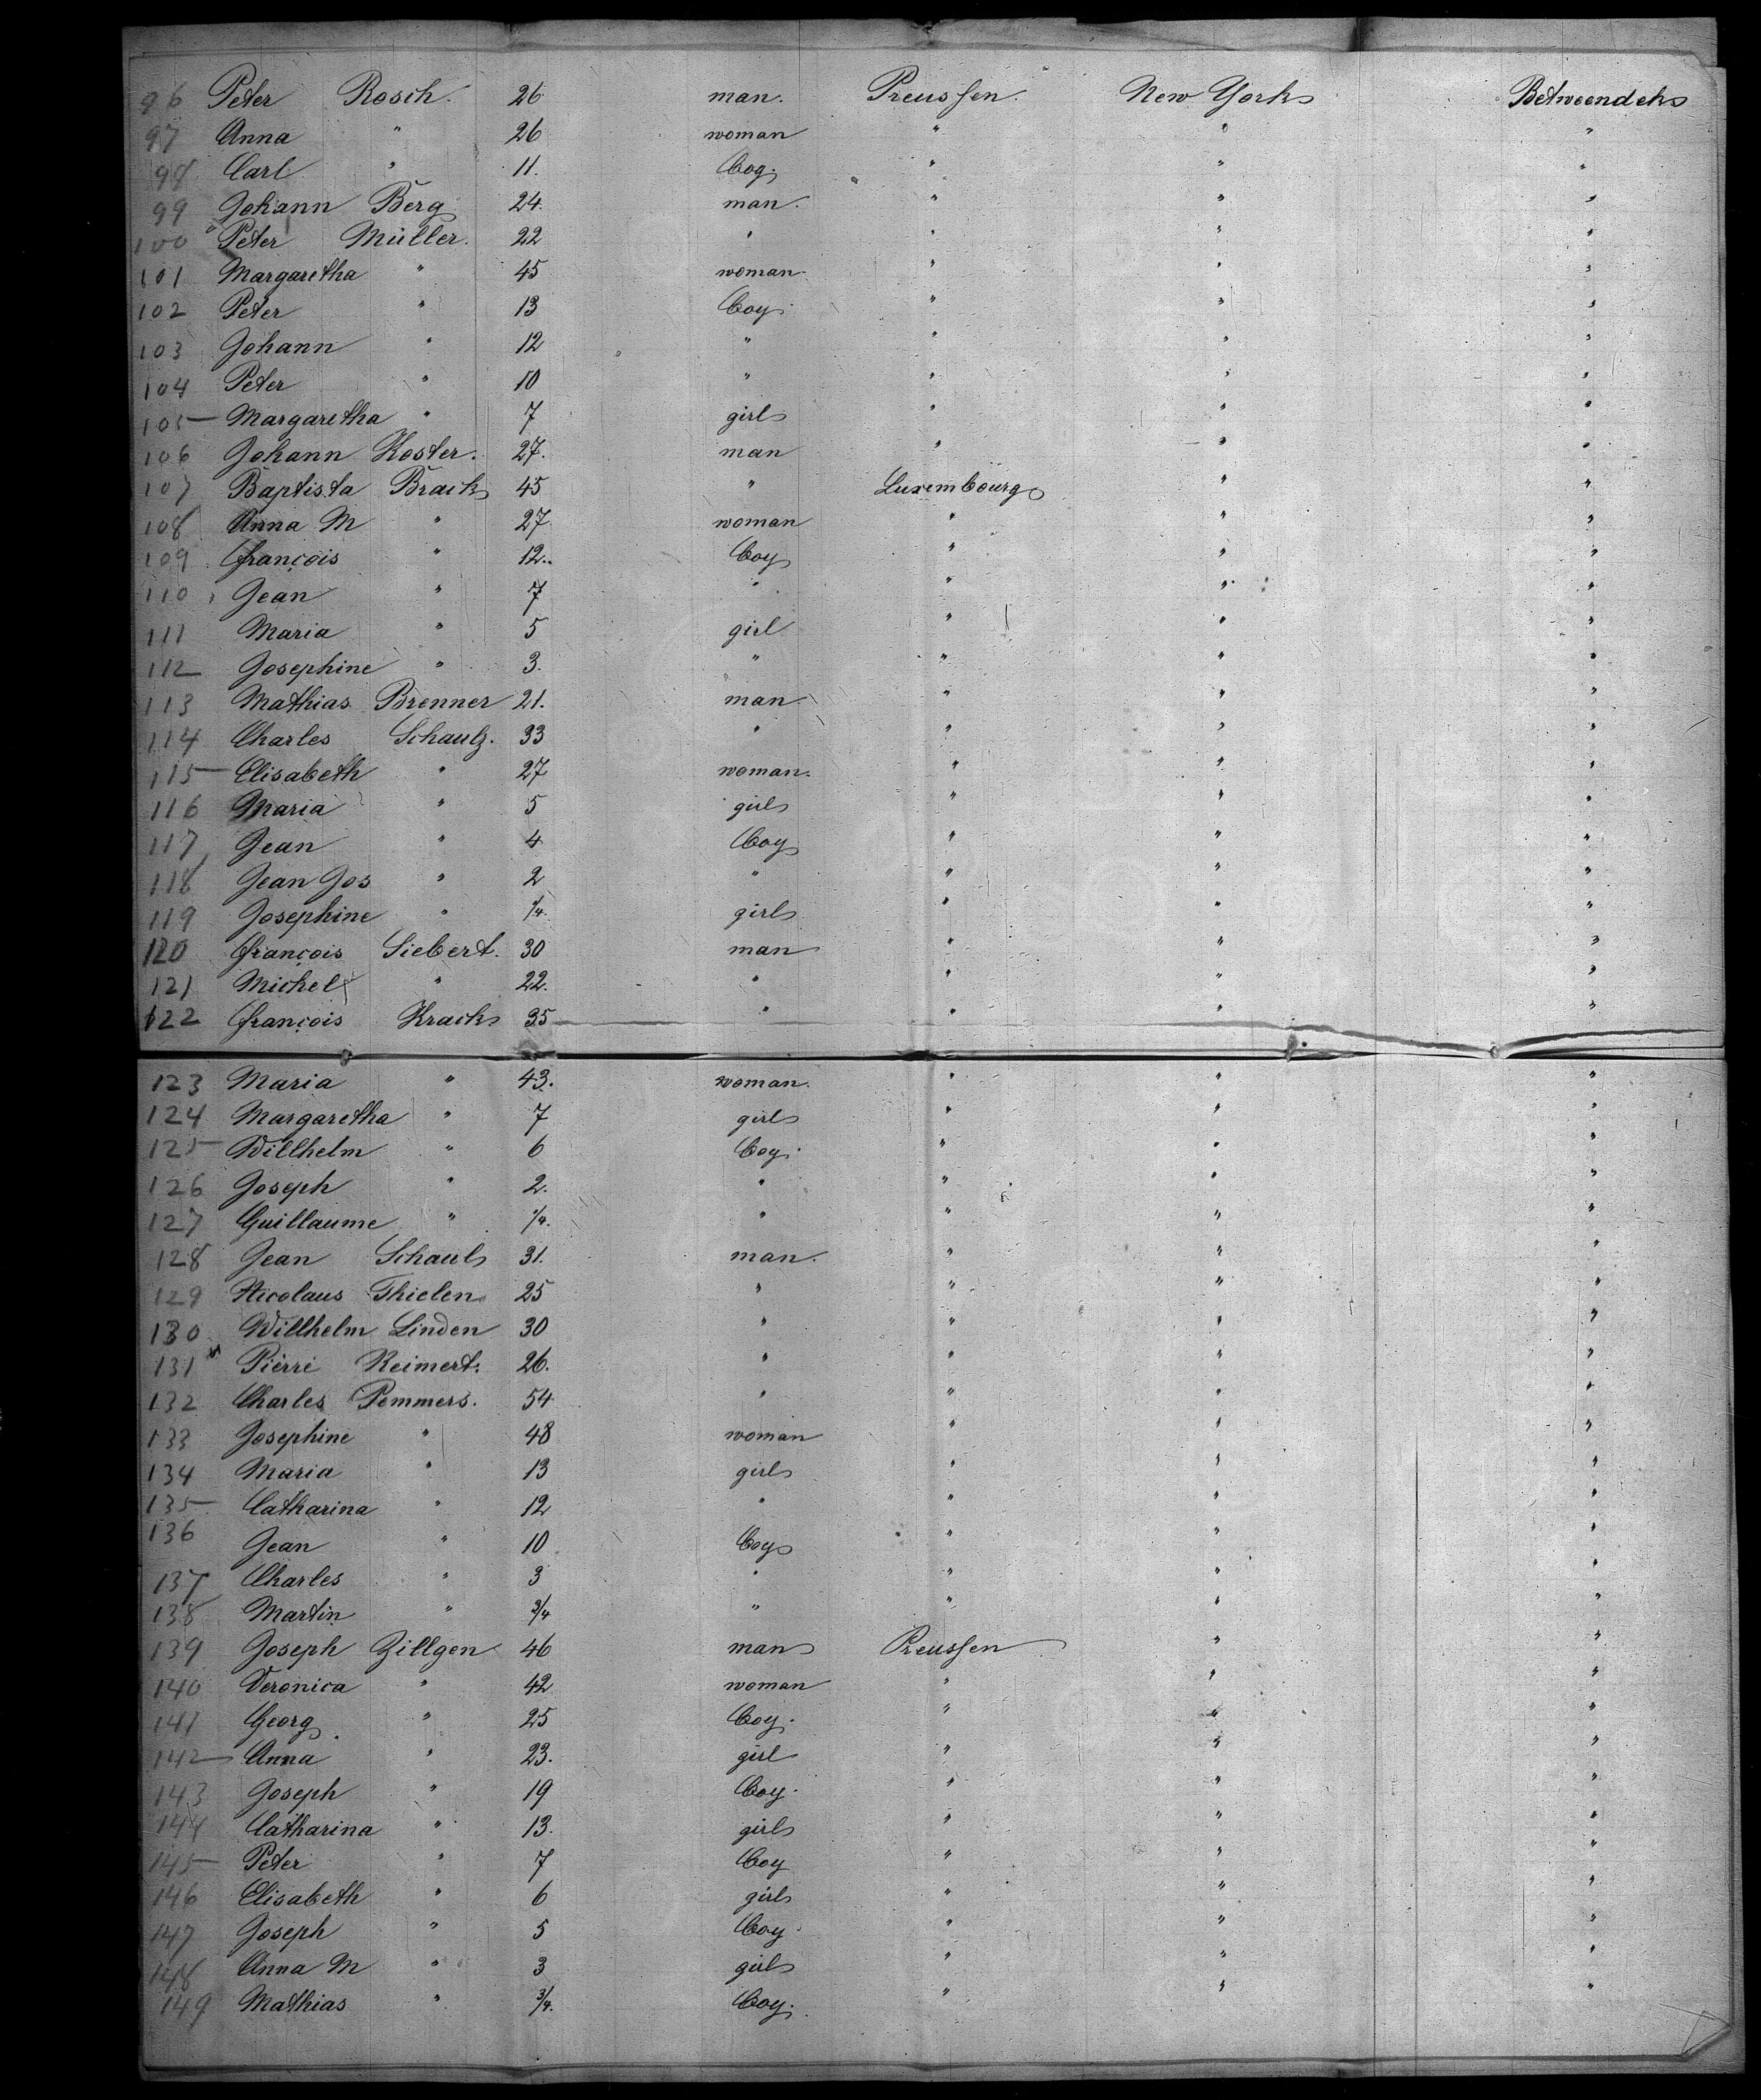 96 Peter Rosch. 26 man. Preussen. New York Betweendeks
97 Anna " 26 woman " " "
98 Carl " 11. boy. " " "
99 Johann Berg 24. man. " " "
100 Peter Müller. 22 " " " "
101 Margaretha " 45 woman " " "
102 Peter " 13 boy " " "
103 Johann " 12 " " " "
104 Peter " 10 " " " "
105 Margaretha " 7 girl " " "
106 Johann Koster. 27. man " " "
107 Baptista Brack 45 " Luxembourg " "
108 Anna M " 27 woman " " "
109 François " 12. boy " " "
110 Jean " 7 " " " "
111 Maria " 5 girl " " "
112 Josephine " 3. " " " "
113 Mathias Brenner 21. man " " "
114 Charles Schaulz. 33 " " " "
115 Elisabeth " 27 woman. " " "
116 Maria " 5 girl " " "
117 Jean " 4 boy " " "
118 Jean Jos " 2 " " " "
119 Josephine " 1/4. girl " " "
120 François Siebert. 30 man " " "
121 Michel " 22. " " " "
122 François Krack 35 " " " "
123 Maria " 43. woman. " " "
124 Margaretha " 7 girl " " "
125 Willhelm " 6 boy. " " "
126 Joseph " 2. " " " "
127 Guillaume " 1/4. " " " "
128 Jean Schaul 31. man. " " "
129 Nicolaus Thielen 25 " " " "
130 Willhelm Linden 30 " " " "
131 Pièrre Reimert. 26. " " " "
132 Charles Pommers. 54 " " " "
133 Josephine " 48 woman " " "
134 Maria " 13 girl " " "
135 Catharina " 12 " " " "
136 Jean " 10 boy " " "
137 Charles " 3 " " " "
138 Martin " 3/4 " " " "
139 Joseph Zillgen 46 man Preussen " "
140 Veronica " 42 woman " " "
141 Georg " 25 boy. " " "
142 Anna " 23. girl " " "
143 Joseph " 19 boy. " " "
144 Catharina " 13. girl " " "
145 Peter " 7 boy " " "
146 Elisabeth " 6 girl " " "
147 Joseph " 5 boy " " "
148 Anna M " 3 girl " " "
149 Mathias " 3/4. boy. " " "